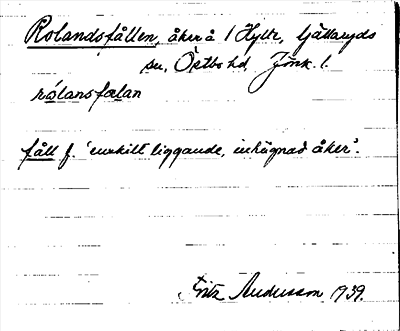 Rolandsfållen, åker å 1 Hylte, Gällaryds
sn, Östbo hd, Jönk. l.
rólansfælan
fåll f. 'enskilt liggande, inhägnad åker'.
Fritz Andersson 1939.